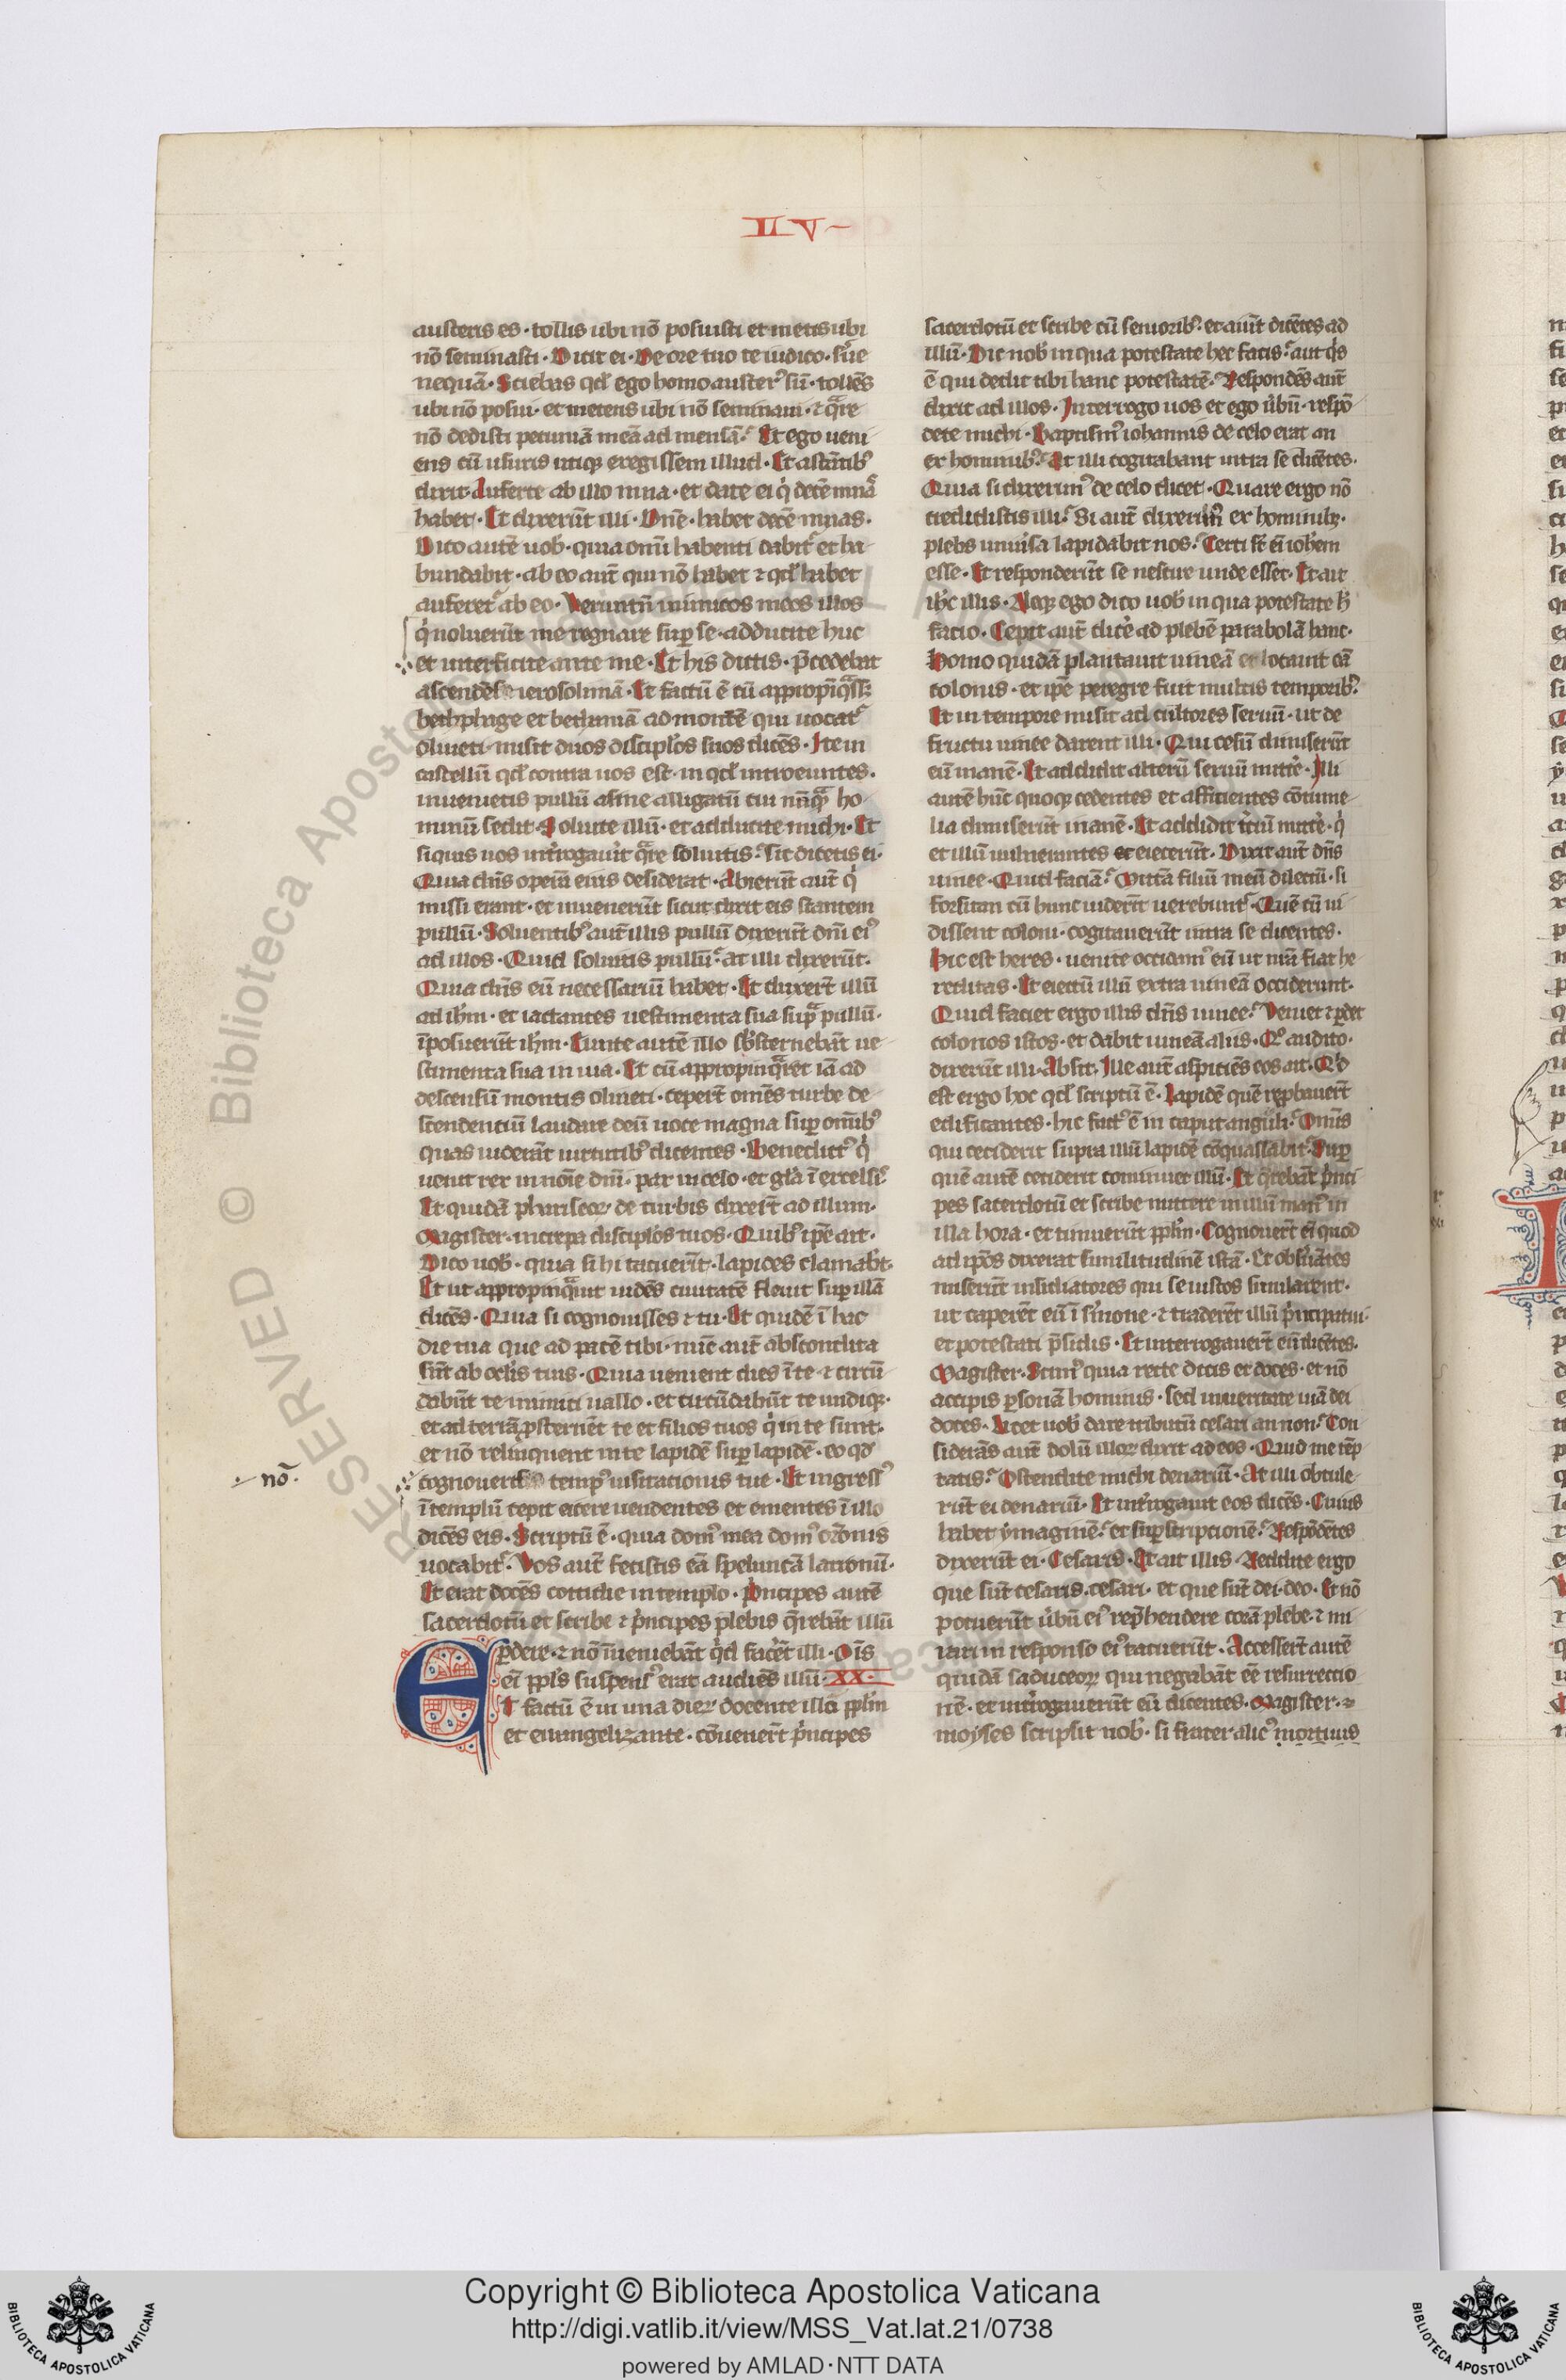 LV
austeris es · tollis ubi nō posuisti et metis ubi
nō seminasti · Dicit ei · De ore tuo te iudico · s̄ue
nequā · Sciebas qđ ego homo auster᾿ sū · tollēs
ubi nō posui · et metens ubi nō seminaui · ⁊ qͣre
nō dedisti pecuniā meā ad mensā · Et ego ueni
ens cū usuris utiqꝫ exegissem illud · Et astātib᾿
dixit · Auferte ab illo mna · et date ei q̇ decē mnas
habet · Et dixerūt illi · Dn̄e · habet decē mnas ·
Dico autē uob̄ · quia omī habenti dabit᾿ et ha
bundabit · ab eo aūt qui nō habet ⁊ qđ habet
auferet᾿ ab eo · Veruntn̄ inimicos meos illos
q̇ noluerūt me regnare suꝑ se · adducite huc
et interficite ante me · Et his dictis · p̄cedebat
ascendēs ierosolimā · Et factū ē cū appropīqͣss;
bethphage et bethaniā ad montē qui uocat᾿
oliueti · misit duos discipl̄os suos dicēs · Ite in
castellū qđ contra uos est · in qđ introeuntes ·
inuenietis pullū asine alligatū cui nūqͣ ho
minū sedit · Soluite illū · et adducite michi · Et
siquis uos int̄rogauīt qͣre soluitis · sic dicetis ei ·
Quia dn̄s operā eius desiderat · Abierūt aūt q̇
missi erant · et inuenerūt sicut dixit eis stantem
pullū · Soluentib᾿ aūt illis pullū dixerūt dn̄i ei᾿
ad illos · Quid soluitis pullū · at illi dixerūt ·
Quia dn̄s eū necessariū habet · Et duxer̄t illū
ad ih̄m · et iactantes uestimenta sua supͣ pullū ·
īposuerūt ih̄m · Eunte autē illo sb̄sternebāt ue
stimenta sua in uia · Et cū appropinqͣret iā ad
descensū montis oliueti · ceper̄t omēs turbe de
scendentiū laudare deū uoce magna suꝑ omīb᾿
quas uiderāt uirtutib᾿ dicentes · Benedict᾿ q̇
uenit rex in noīe dn̄i · pax in celo · et gl̄a ī excelsis
Et quidā phariseoꝝ de turbis dixer̄t ad illum ·
Magister · increpa discipl̄os tuos · Quib᾿ ip̄e ait ·
Dico uob̄ · quia si hi tacuerīt · lapides clamabt̄ ·
Et ut appropinqͣuit uidēs ciuitatē fleuit suꝑ illā
dicēs · Quia si cognouisses ⁊ tu · Et quidē ī hac
die tua que ad pacē tibi · nūc aūt abscondita
sūt ab ocl̄is tuis · Quia uenient dies ī te · ⁊ circū
dabūt te inimici uallo · et circūdabūt te undiqꝫ ·
et ad terrā ꝓsternēt te et filios tuos q̇ in te sunt ·
et nō relinquent in te lapidē suꝑ lapidē · eo qđ
nō ·
cognoueris temp᾿ uisitacionis tue · Et ingress᾿
ī templū cepit eicere uendentes et ementes ī illo
dicēs eis · Scriptū ē · quia dom᾿ mea dom᾿ or̄onis
uocabit᾿ · Vos aūt fecistis eā speluncā latronū ·
Et erat docēs cottidie in templo · Pn̄cipes autē
sacerdotū et scribe ⁊ p̄ncipes plebis q̄rebāt illū
ꝑdere · ⁊ nō īueniebāt q̇d facēt illi · Oīs
eī ppl̄s suspens᾿ erat audiēs illū · XX ·
ET factū ē in una dieꝝ docente illo ppl̄m
et euangelizante · cōuenert̄ p̄ncipes
sacerdotū et scribe cū seniorib᾿ · et aiūt dicētes ad
illū · Dic nob̄ in qua potestate hec facis · aut q̇s
ē qui dedit tibi hanc potestatē · Respondēs aūt
dixit ad illos · Interrogo uos et ego ūbū · respō
dete michi · Baptism᾿ iohannis de celo erat an
ex hominib᾿ · At illi cogitabant intra se dicētes ·
Quia si dixerim᾿ de celo dicet · Quare ergo nō
credidistis illi · Si aūt dixerim᾿ ex hominibꝫ ·
plebs uniūsa lapidabit nos · Certi sūt eī ioh̄em
esse · Et responderūt se nescire unde esset · Et ait
ih̄c illis · Neqꝫ ego dico uob̄ in qua potestate h̄
facio · Cepit aūt dicēe ad plebē parabolā hanc ·
Homo quidā plantauit uineā et locauit eā
colonis · et ip̄e peregre fuit multis temporib᾿
Et in tempore misit ad cultores seruū · ut de
fructu uinee darent illi · Qui cesū dimiserūt
eū inanē · Et addidit alterū seruū mittēe · Illi
autē hūc quoqꝫ cedentes et afficientes cōtume
lia dimiserūt inanē · Et addidit t̄ciū mittēe · q̇
et illū uulnerantes eiecerūt · Dixit aūt dn̄s
uinee · Quid faciā · Mittā filiū meū dilectū · si
forsitan cū hunc uiderīt uerebunt᾿ · Quē cū ui
dissent coloni · cogitauerūt intra se dicentes ·
Hic est heres · uenite occidam᾿ eū ut nr̄a fiat he
reditas · Et eiectū illū extra uineā occiderunt ·
Quid faciet ergo illis dn̄s uinee · Veniet ⁊ ꝑdet
colonos istos · et dabit uineā aliis · Qͦ audito ·
dixerūt illi · Absit · Ille aūt aspiciēs eos ait · Qͥd
est ergo hoc qđ scriptū ē · Lapidē quē reꝓbauert̄
edificantes · hic fact᾿ ē in caput anguli · Omīs
qui ceciderit supra illū lapidē cōquassabit᾿ · Suꝑ
quē autē ceciderit cominuet illū · Et q̄rebāt p̄nci
pes sacerdotū et scribe mittere in illū man᾿ in
illa hora · et timuerūt ppl̄m · Cognouert̄ eī quod
ad ip̄os dixerat similitudinē istā · Et obs̄uātes
miserūt insidiatores qui se iustos simularent ·
ut caperēt eū ī s̄mone · ⁊ traderēt illū p̄ncipatui ·
et potestati p̄sidis · Et interrogauert̄ eū dicētes ·
Magister · Scim᾿ quia recte dicis et doces · et nō
accipis ꝑsonā hominis · sed in ueritate uiā dei
doces · Licet nob̄ dare tributū cesari an non · Con
siderās aūt dolū illoꝝ dixit ad eos · Quid me tēp
tatis · Ostendite michi denariū · At illi obtule
rūt ei denariū · Et int̄rogauit eos dicēs · Cuius
habet ymaginē · et suꝑscriptionē · Respōdētes
dixerūt ei · Cesaris · Et ait illis · Reddite ergo
que sūt cesaris · cesari · et que sūt dei · deo · Et nō
potuerūt ūbū ei᾿ rep̄hendere corā plebe · ⁊ mi
rati in responso ei᾿ tacuerūt · Accessert̄ autē
quidā saduceoꝝ qui negabāt eē resurrectio
nē · et int̄rogauerūt eū dicentes · Magister ·
moyses scripsit nob̄ · si frater alic᾿ mortuus
RESERVED © Biblioteca Apostolica Vaticana
Copyright © Biblioteca Apostolica Vaticana
http://digi.vatlib.it/view/MSS_Vat.lat.21/0738
powered by AMLAD·NTT DATA
BIBLIOTECA APOSTOLICA VATICANA
BIBLIOTECA APOSTOLICA VATICANA